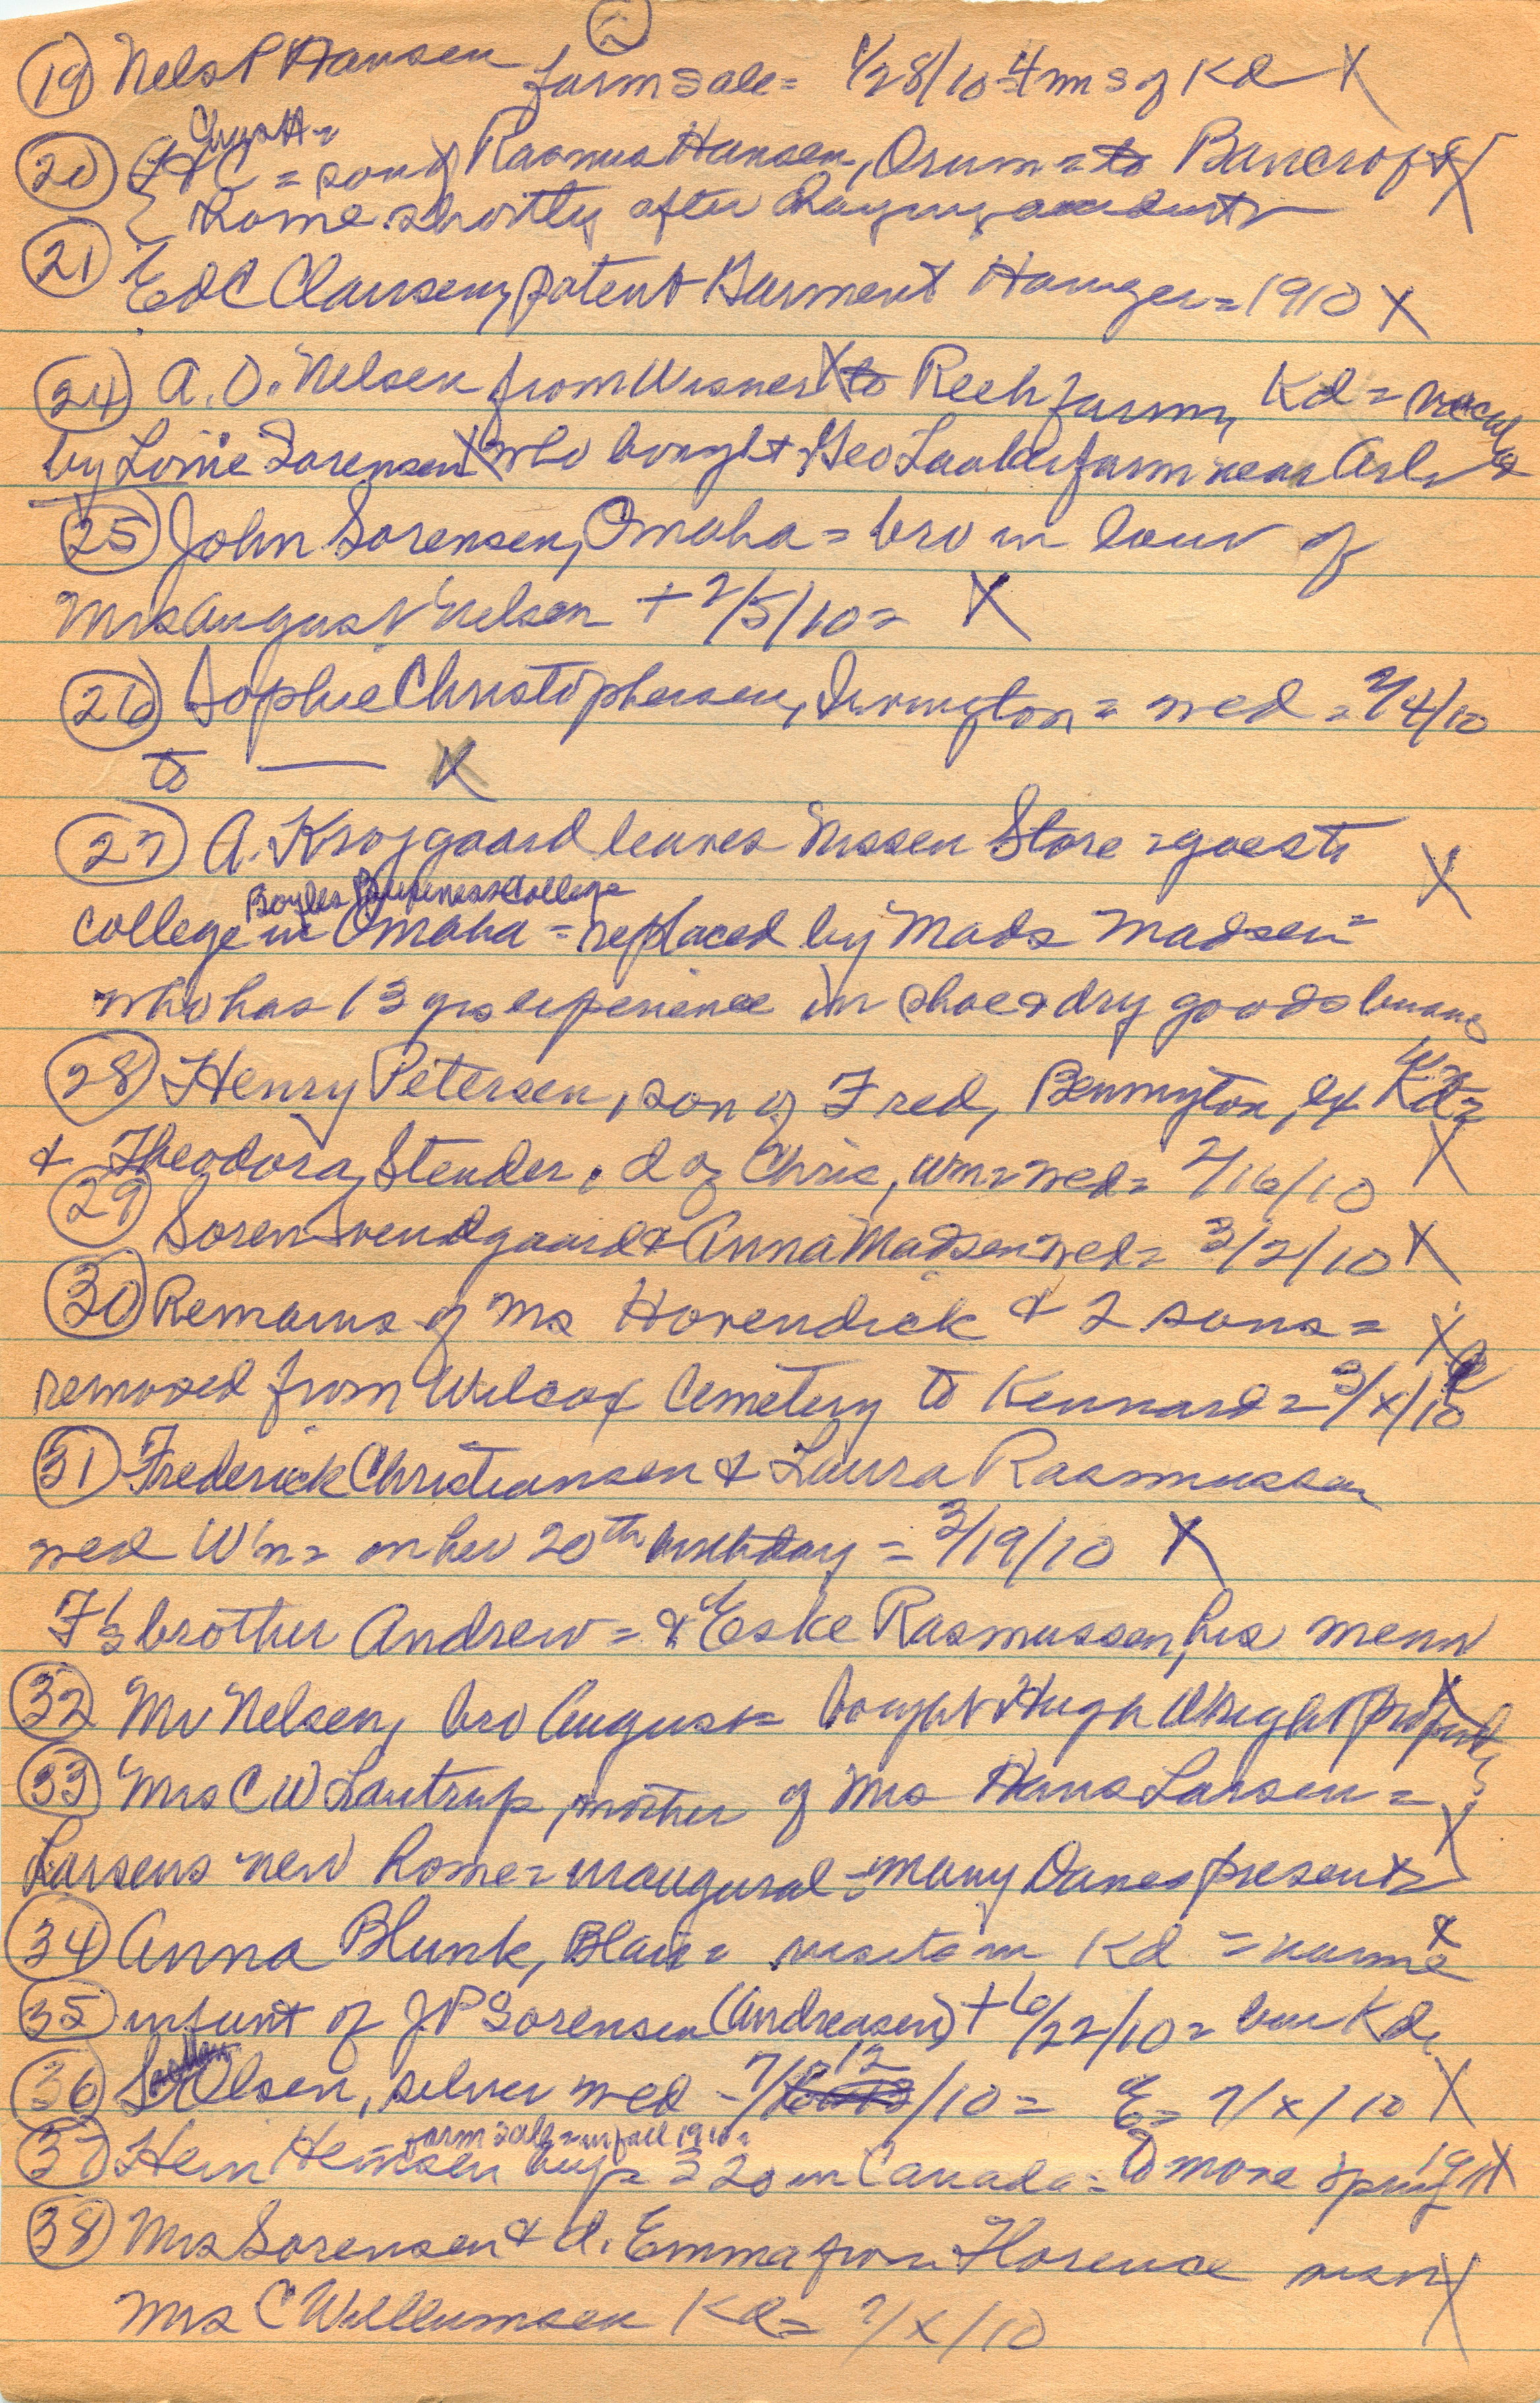 2
19 Nels P Hansen farm sale = 1/28/10 = 4 m S of Kd X
Chras H =
20 H C = son of Rasmus Hansen, Orum = to Bancroft X
home shortly after
21 Ed C Clausen, patent Garment Hanger = 1910 X
24 A. O. Nelsen from Wisner X to Reeh farm, Kd =
by Lorne Sorensen X who bought Geo Laaker farm near Arl
25 John Sorensen, Omaha = bro in law of
Mrs August Nelsen + 2/5/10 = X
26 Sophie Christophersen, Irvington = wed = 2/4/10
to — X
27 A. Krojgaard leaves Nissen Store = goes to X
Boyles Business College
college in Omaha = replaced by Mads Madsen =
who has 13 yrs experience in shoe & dry goods
28 Henry Petersen, son of Fred, Bennington, ex Kd =
& Theodora Stender, d of Chris, Wn = wed = 2/16/10 X
29 Soren Svendgaard & Anna Madsen wed = 3/2/10 X
30 Remains of Mrs Hovendick & 2 sons = X
removed from Wilcox Cemetery to Kennard = 3/x/10
31 Frederick Christiansen & Laura Rasmussen
wed Wn = on her 20th birthday = 3/19/10 X
F's brother Andrew = & Eske Rasmussen, his
32 Mr Nelsen, bro August = bought Hugh Wright property X
33 Mrs C W Lautrup, mother of Mrs Hans Larsen =
Larsens new home = inaugural = many Danes present X
34 Anna Blunk, Blair = visits in Kd = nurse X
35 infant of J P Sorensen (Andreasen) + 6/22/10 = bur Kd
36 Olsen, silver wed - 7/12/10 = E = 7/x/10 X
farm sale = in fall 1910 =
37 Hein Hemsen buys 320 in Canada = to move spring 1911 X
38 Mrs Sorensen & d. Emma from Florence visit X
Mrs C Willumsen Kd = 7/x/10